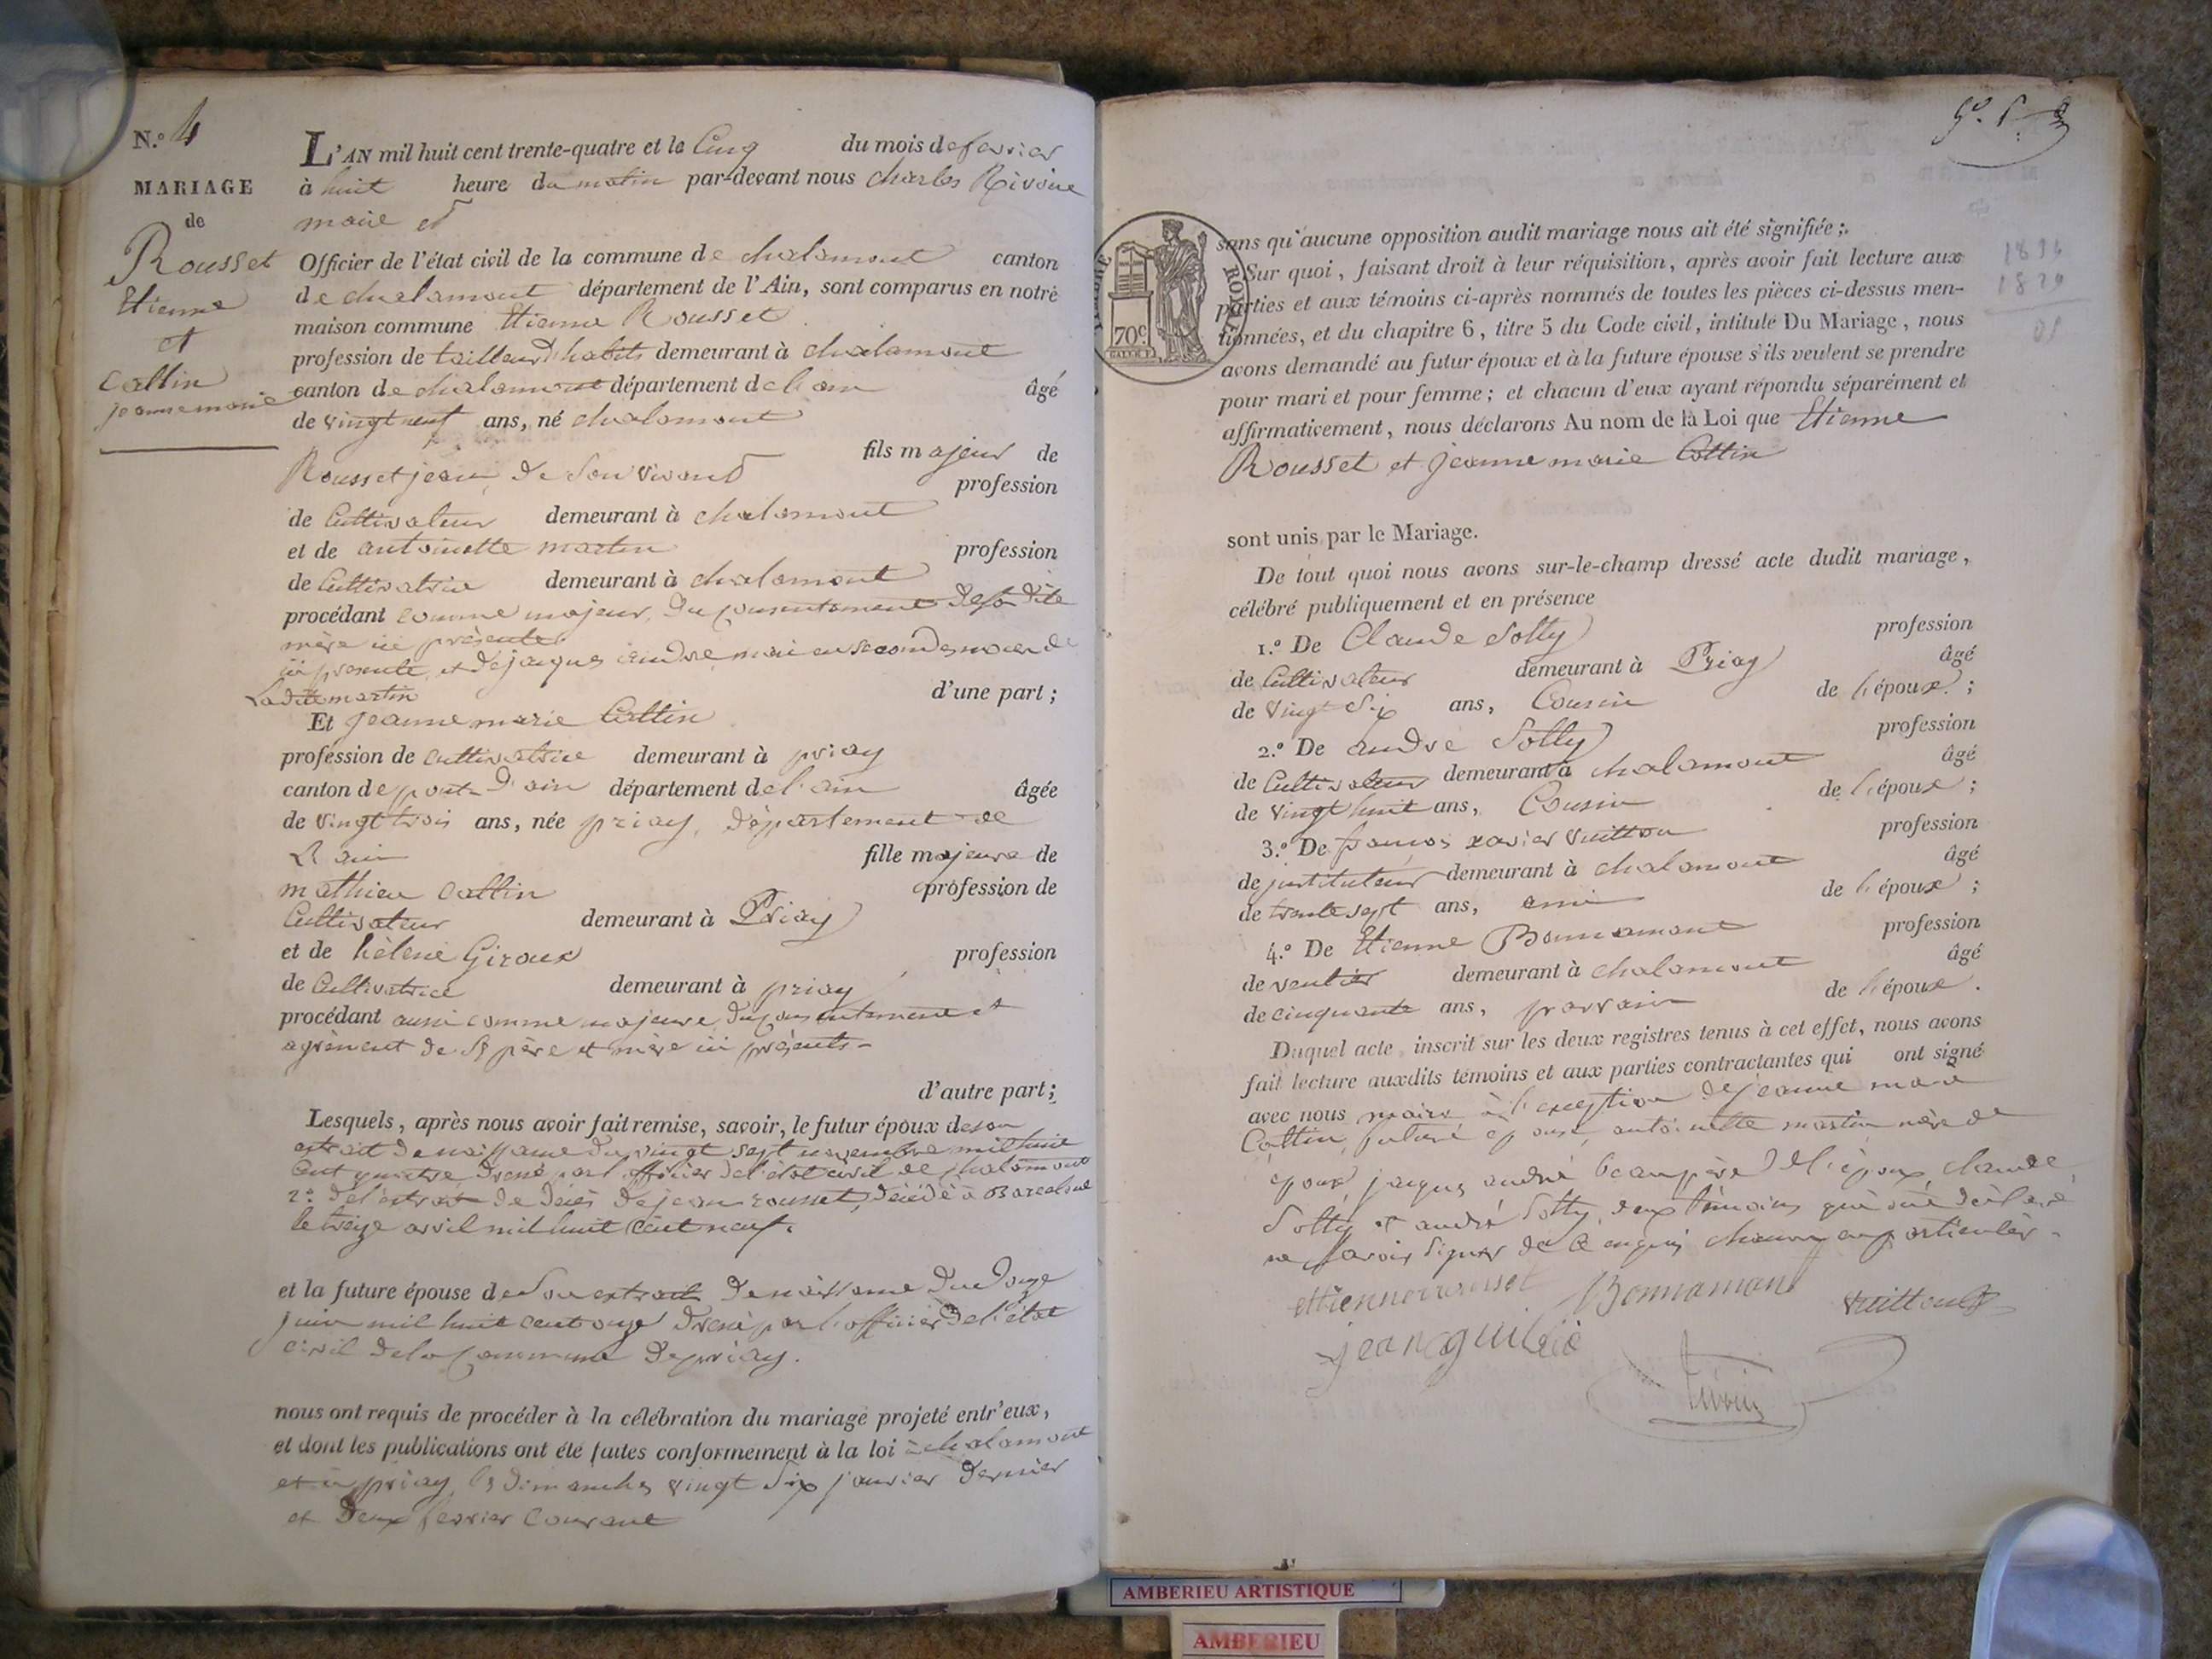 N.º 4
MARIAGE
de
Rousset
Etienne
et
Cattin
jeanne marie
L'AN mil huit cent trente-quatre et le Cinq du mois de fevrier
à huit heure du matin par-devant nous charles Rivoire
maire et
Officier de l'état civil de la commune de chalamont canton
de chalamont département de l'Ain, sont comparus en notre
maison commune Etienne Rousset
profession de tailleur d'habits demeurant à chalamont
canton de chalamont département de l'ain âgé
de vingt neuf ans, né chalamont
fils majeur de
Rousset jean, de son vivant profession
de Cultivateur demeurant à chalamont
et de antoinette martin profession
de Cultivatrice demeurant à chalamont
procédant comme majeur, du consentement de sa dite
mère ici présente
ici presente, et de jacques andré mari en secondes noces de
Ladite martin d'une part ;
Et jeanne marie Cattin
profession de cultivatrice demeurant à priay
canton de pont d'ain département de l'ain âgée
de vingt trois ans, née priay, département de
L'ain fille majeure de
mathieu Cattin profession de
Cultivateur demeurant à Priay
et de hélène Giroux profession
de Cultivatrice demeurant à priay
procédant aussi comme majeure, du consentement et
agrément de ses père et mère ici présents
d'autre part ;
Lesquels, après nous avoir fait remise, savoir, le futur époux de son
extrait de naissance du vingt sept novembre mil huit
cent quatre dressé par l'officier de l'état civil de chalamont
2º de l'extrait de décès de jean rousset, décédé à Barcelone
le treize avril mil huit cent neuf.
et la future épouse de son extrait de naissance du douze
juin mil huit cent onze dressé par l'officier de l'état
civil de la commune de priay.
nous ont requis de procéder à la célébration du mariage projeté entr'eux,
et dont les publications ont été faites conformément à la loi à chalamont
et à priay, les dimanches vingt six janvier dernier
et deux fevrier courant
TIMBRE ROYAL
70c
sans qu'aucune opposition audit mariage nous ait été signifiée ;
Sur quoi, faisant droit à leur réquisition, après avoir fait lecture aux
parties et aux témoins ci-après nommés de toutes les pièces ci-dessus men-
tionnées, et du chapitre 6, titre 5 du Code civil, intitulé Du Mariage, nous
avons demandé au futur époux et à la future épouse s'ils veulent se prendre
pour mari et pour femme ; et chacun d'eux ayant répondu séparément et
affirmativement, nous déclarons Au nom de la Loi que Etienne
Rousset et jeanne marie Cattin
sont unis par le Mariage.
De tout quoi nous avons sur-le-champ dressé acte dudit mariage,
célébré publiquement et en présence
1.º De Claude Solty profession
de Cultivateur demeurant à Priay âgé
de vingt Six ans, Cousin de l'époux ;
2.º De andré Solty profession
de Cultivateur demeurant à chalamont âgé
de vingt huit ans, Cousin de l'époux ;
3.º De françois xavier Vuitton profession
de instituteur demeurant à chalamont âgé
de trente sept ans, ami de l'époux ;
4.º De Etienne Bonnamant profession
de rentier demeurant à chalamont âgé
de cinquante ans, parrain de l'époux.
Duquel acte, inscrit sur les deux registres tenus à cet effet, nous avons
fait lecture auxdits témoins et aux parties contractantes qui ont signé
avec nous maire à l'exception de jeanne marie
Cattin, future épouse, antoinette martin mère de
époux jacques andré beaupère de l'époux, claude
Solty et andré Solty, deux témoins qui ont déclaré
ne savoir signer de ce enquis chacun en particulier.
ettienne rousset Bonnamant Vuitton
Rivoire
AMBERIEU ARTISTIQUE
AMBERIEU